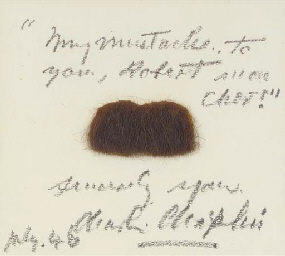 "My mustache.. to
you, Robert
Cher!"
Sincerely yours.
Charlie Chaplin
46